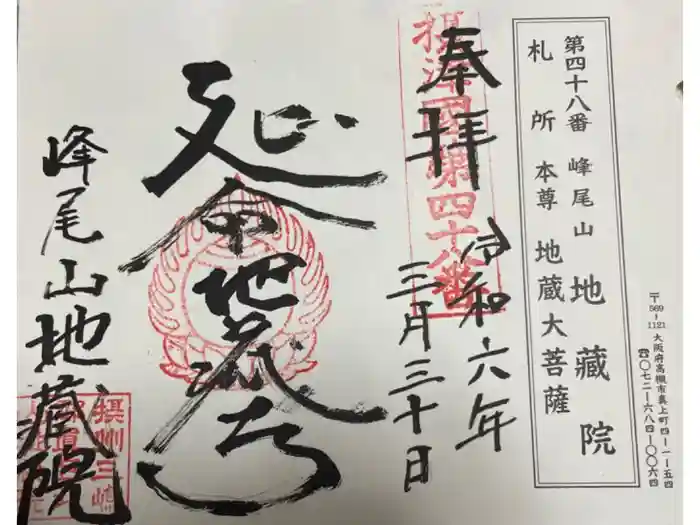 〒569-1121 大阪府高槻市真上町四-一-五四
☎〇七二-六八四-〇〇六四
第四十八番 峰尾山 地蔵院
札所本尊 地蔵大菩薩
奉拝
摂津國第四十八番
令和六年
三月三十日
延命地蔵尊
峰尾山地蔵院
摂州三嶋